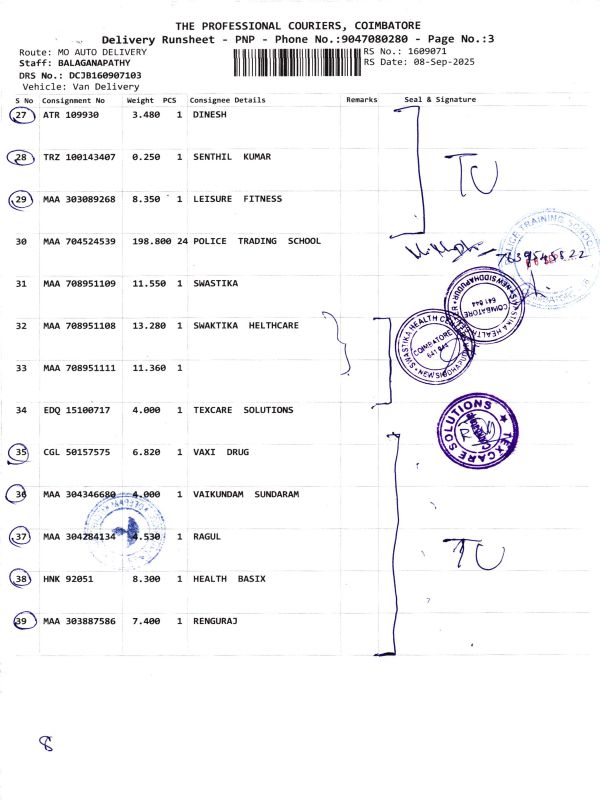 THE PROFESSIONAL COURIERS, COIMBATORE
Delivery Runsheet - PNP - Phone No.:9047080280 - Page No.:3
Route: MO AUTO DELIVERY RS No.: 1609071
Staff: BALAGANAPATHY RS Date: 08-Sep-2025
DRS No.: DCJB160907103
Vehicle: Van Delivery
S No Consignment No Weight PCS Consignee Details Remarks Seal & Signature
27 ATR 109930 3.480 1 DINESH
28 TRZ 100143407 0.250 1 SENTHIL KUMAR
TU
29 MAA 303089268 8.350 1 LEISURE FITNESS
30 MAA 704524539 198.800 24 POLICE TRADING SCHOOL
POLICE TRAINING SCHOOL
31 MAA 708951109 11.550 1 SWASTIKA
SWASTIKA HEALTH COIMBATORE 641 044 NEWSIDDHAPUDUR
32 MAA 708951108 13.280 1 SWAKTIKA HELTHCARE
SWASTIKA HEALTH COIMBATORE NEWSIDDHAPUDUR
33 MAA 708951111 11.360 1
34 EDQ 15100717 4.000 1 TEXCARE SOLUTIONS
TEXCARE SOLUTIONS
35 CGL 50157575 6.820 1 VAXI DRUG
36 MAA 304346680 4.000 1 VAIKUNDAM SUNDARAM
37 MAA 304284134 4.530 1 RAGUL
TU
38 HNK 92051 8.300 1 HEALTH BASIX
39 MAA 303887586 7.400 1 RENGURAJ
8